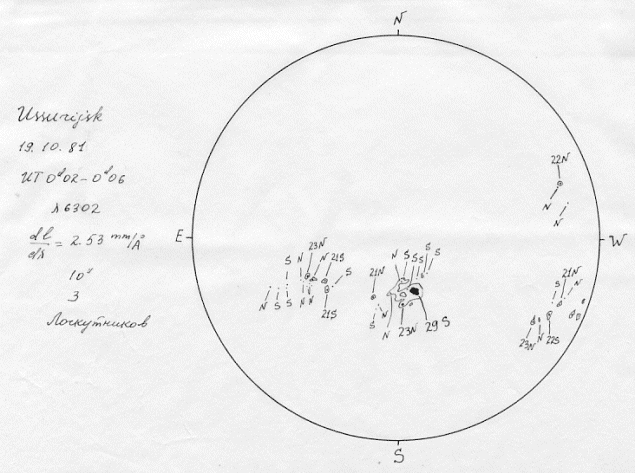 Ussurijsk
19.10.81
UT 0ʰ02 - 0ʰ06
λ6302
dl/dλ = 2.53 mm/Å
10"
3
Лоскутников
N
22N
N
N
E
W
23N
N
21S
S
N
S
S
N
S
S
N
N
21S
21N
S
N
N
S
S
S
S
S
23N
29S
21N
N
23N
N
22S
S